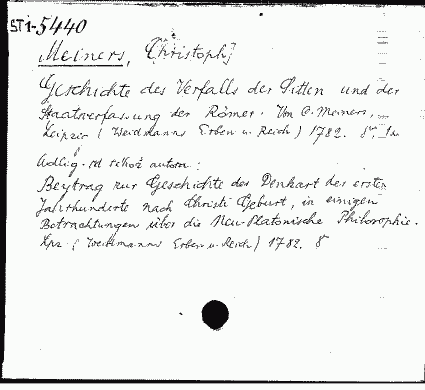 ST 1-5440
Meiners, Christoph,
Geschichte des Verfalls der Sitten und der
Staatverfassung der Römer. Von C. Meiners,
Leipzig (Weidmanns Erben u. Reich) 1782. 8°.
autora:
Beytrag zur Geschichte der Denkart der ersten
Jahrhunderte nach Christi Geburt, in einigen
Betrachtungen über die Neu-Platonische Philosophie.
Lpz. (Weidmanns Erben u. Reich) 1782. 8